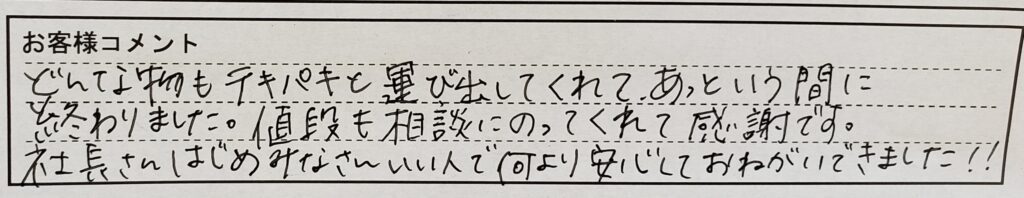 お客様コメント
どんな物もテキパキと運び出してくれて、あっという間に
終わりました。値段も相談にのってくれて感謝です。
社長さんはじめみなさんいい人で何より安心しておねがいできました!!